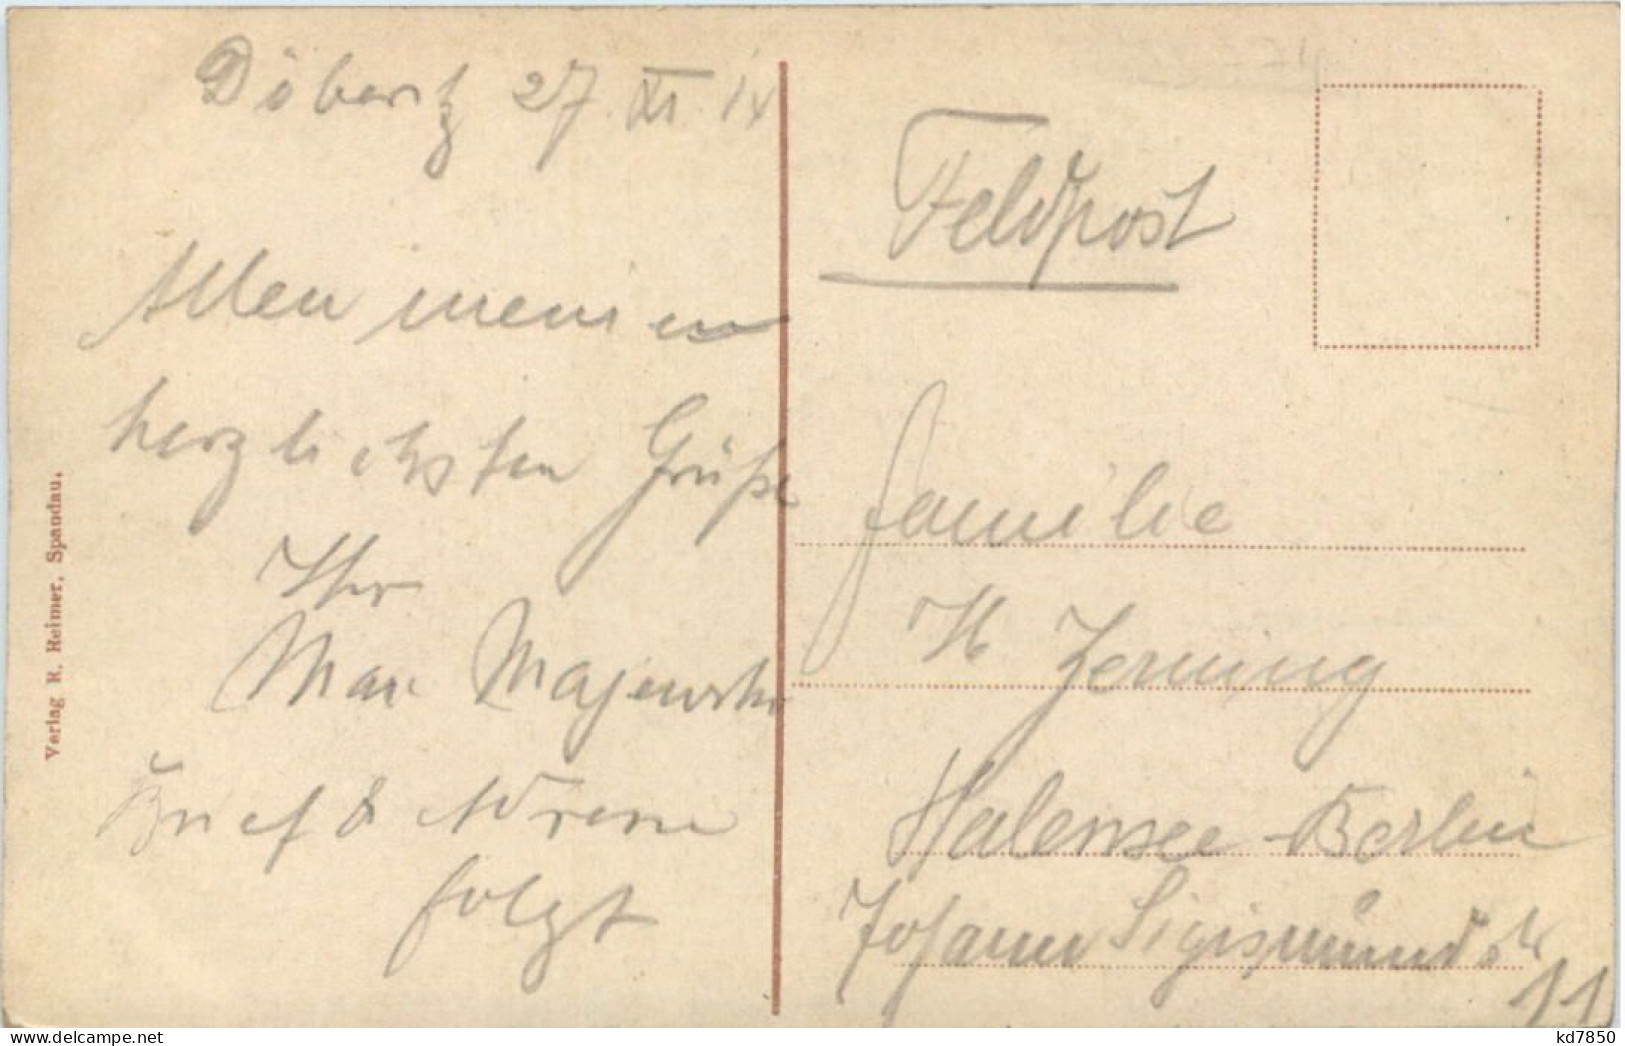 Döberitz 27. XI. 14
Allen meinen
herzlichsten Grüße
Ihr
Max Majewski
Brief & Adresse
folgt
Verlag H. Reimer, Spandau.
Feldpost
Familie
H Zerning
Halensee-Berlin
Johann Sigismund str
11
kd7850